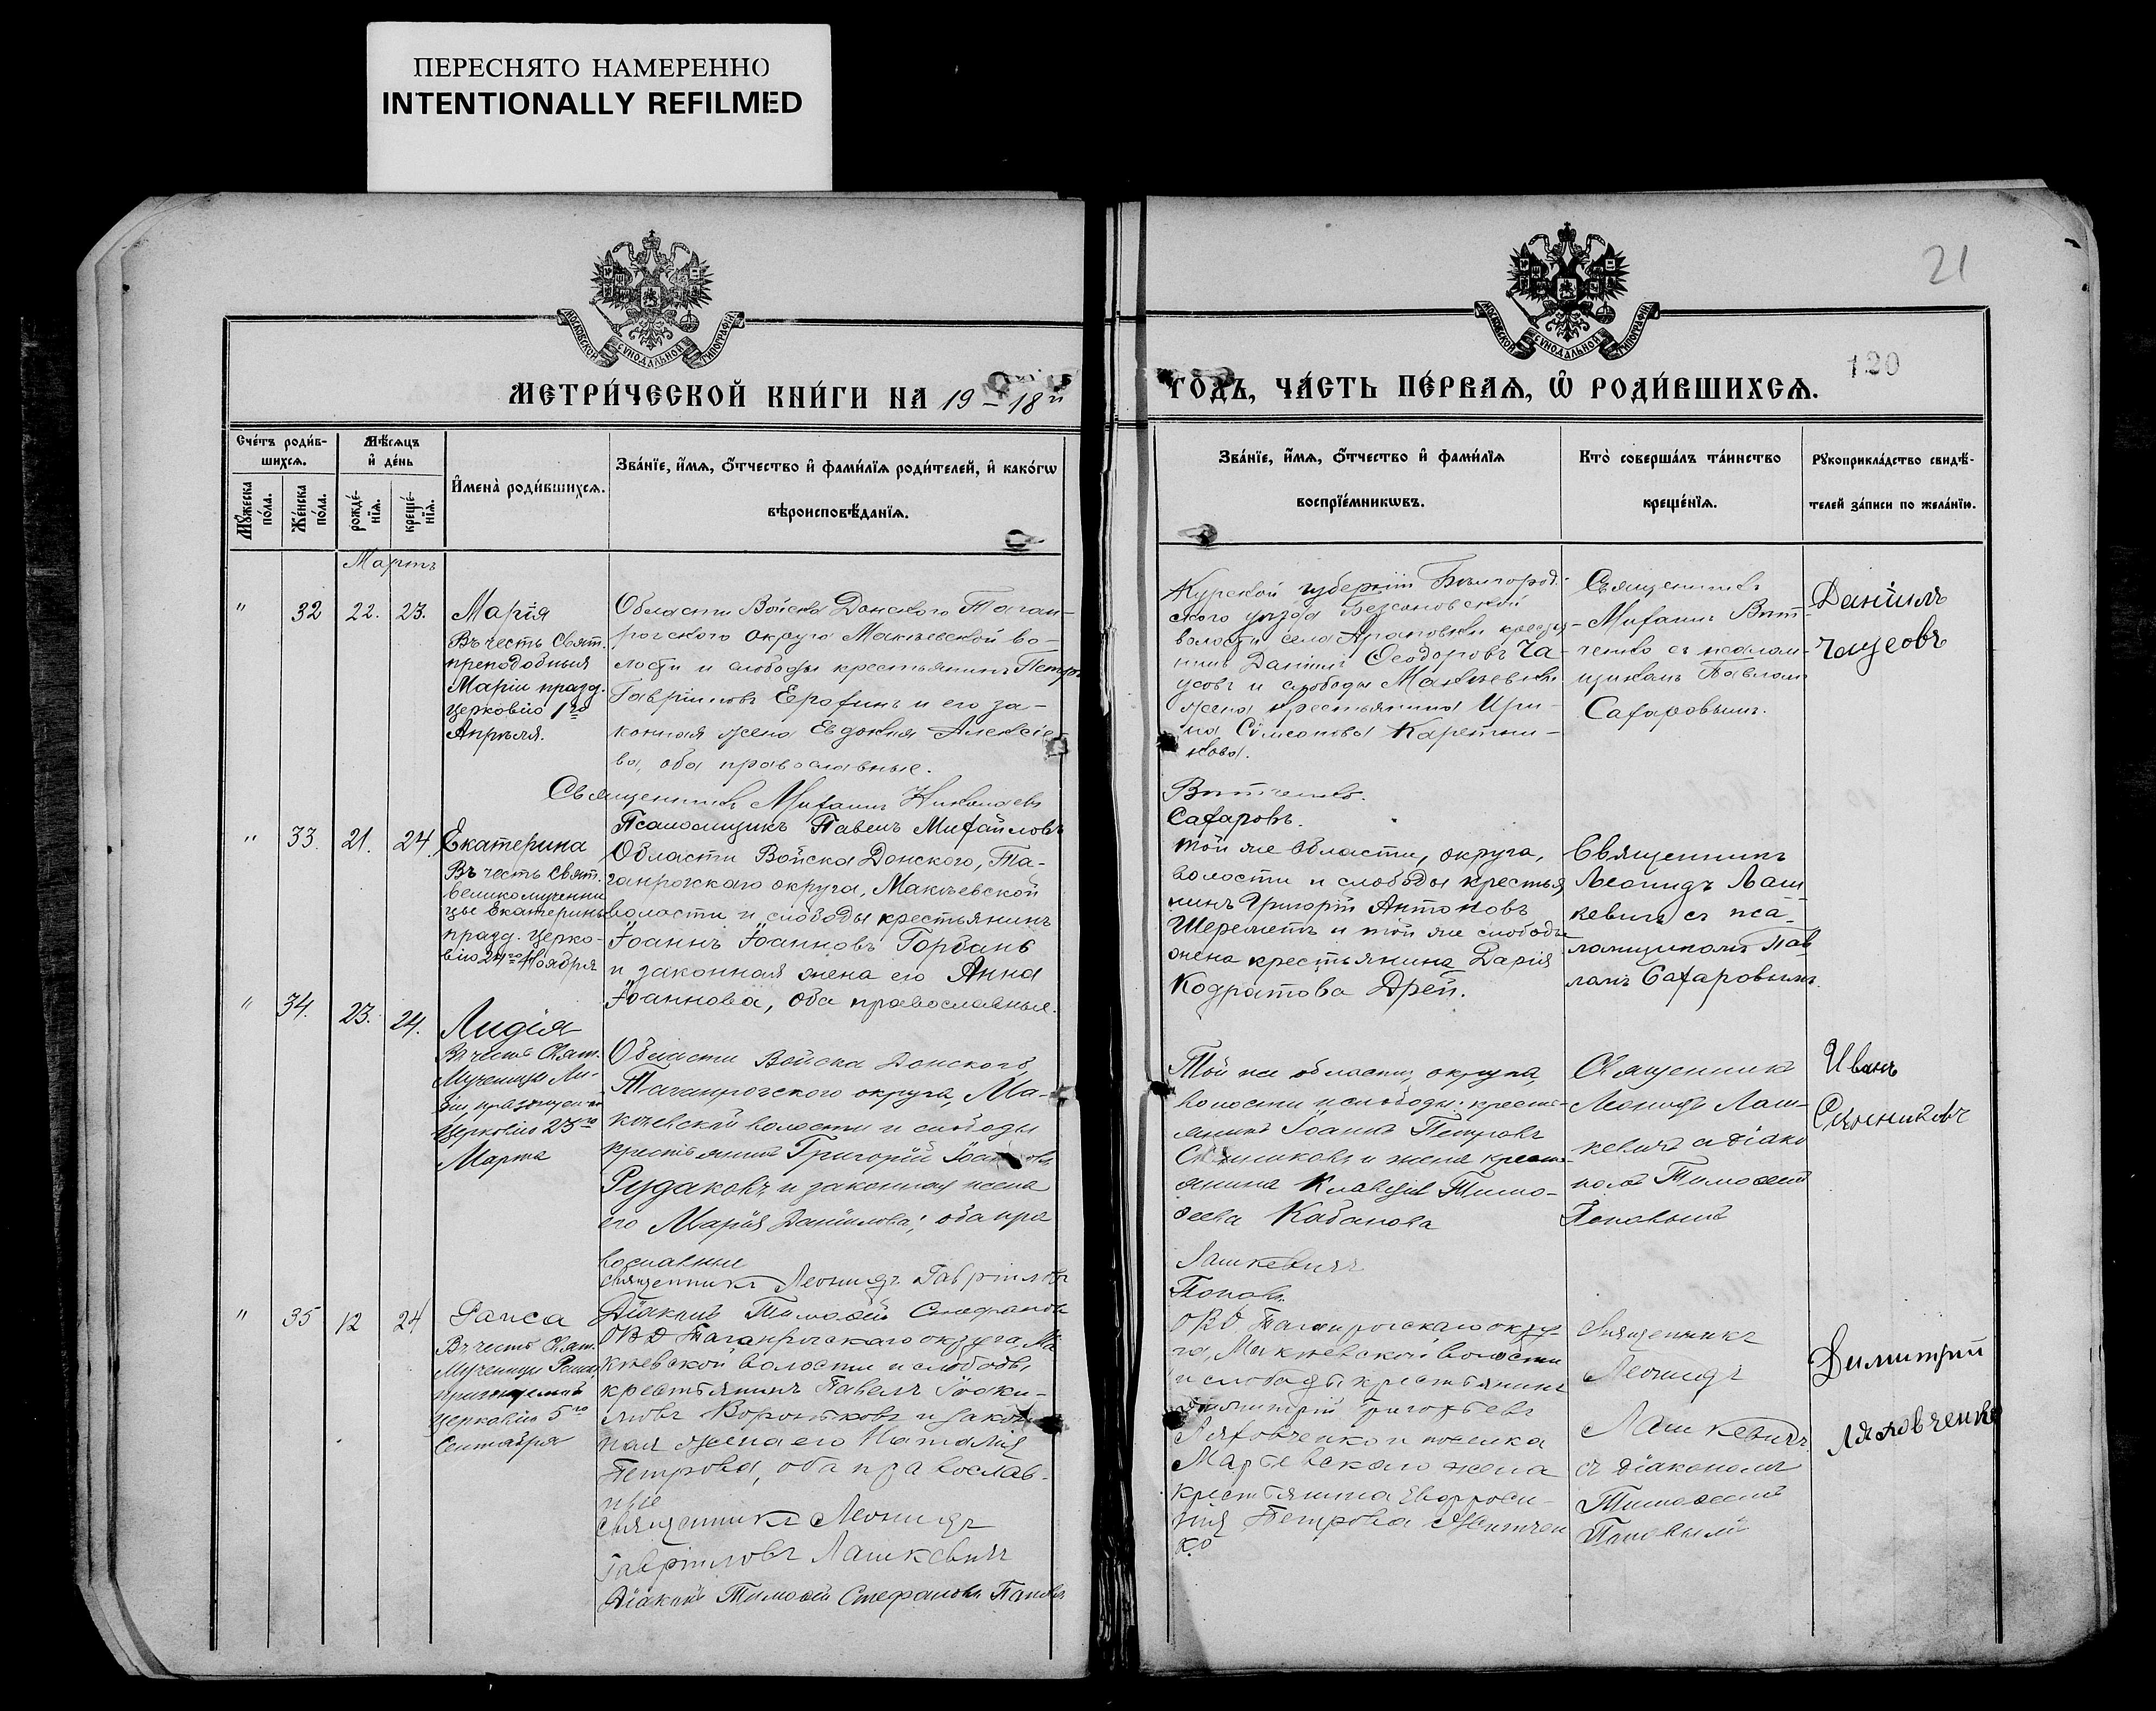 ПЕРЕСНЯТО НАМЕРЕННО
INTENTIONALLY REFILMED
21
МОСКОВСКОЙ СѴНОДАЛЬНОЙ ТИПОГРАФІИ
МОСКОВСКОЙ СѴНОДАЛЬНОЙ ТИПОГРАФІИ
120
МЕТРИ́ЧЕСКОЙ КНИ́ГИ НА 19 – 18й
ГОДЪ, ЧА́СТЬ ПЕ́РВАѦ, Ѡ РОДИ́ВШИХСѦ.
Сче́тъ роди́в-
шихсѧ.
Мꙋ́жеска по́ла.
Же́нска по́ла.
Мѣ́сѧцъ
и҆ де́нь
рожде́-
нїѧ.
креще́-
нїѧ.
И҆мена̀ роди́вшихсѧ.
Зва́нїе, и҆́мѧ, ѻ҆́тчество и҆ фами́лїѧ роди́телей, и҆ како́гѡ
вѣроисповѣ́данїѧ.
Зва́нїе, и҆́мѧ, ѻ҆́тчество и҆ фами́лїѧ
воспрїе́мникѡвъ.
Кто̀ соверша́лъ та́инство
креще́нїѧ.
Рꙋкоприкла́дство свидѣ́-
телей за́писи по жела́нїю.
Мартъ
" 32 22. 23.
Марія
Въ честь Свят.
преподобныя
Маріи празд.
Церковію 1го
Апрѣля.
Области Войска Донского Таган-
рогского округа Макѣевской во-
лости и слободы крестьянинъ Петръ
Гавріиловъ Ерофинъ и его за-
конная жена Евдокія Алексіе-
ва, оба православные.
Священникъ Михаилъ Николаевъ
Псаломщикъ Павелъ Михайловъ
Курской губерніи Бѣлгород-
ского уѣзда
волости села
Даніилъ Ѳеодоровъ Ча-
усовъ и слободы Макѣевки
жена крестьянина Ири-
на Сѵмеонова Каретни-
кова.
Сафаровъ.
Священникъ
Михаилъ
съ псалом-
щикомъ Павломъ
Сафаровымъ.
Даніилъ
Чаусовъ
" 33. 21. 24.
Екатерина
Въ честь Свят.
великомучени
цы Екатерины
празд. Церко-
вію 24го Ноября
Области Войска Донского, Та-
ганрогскаго округа, Макѣевской
волости и слободы крестьянинъ
Іоаннъ Іоанновъ Горбань
и законная жена его Анна
Іоаннова, оба православные.
Той же области, округа,
волости и слободы крестья
нинъ Григорій Антоновъ
Шереметъ и той же слободы
жена крестьянина Дарія
Кодратова Дрей.
Священникъ
Леонидъ Лаш
кевичъ съ пса-
ломщикомъ Пав
ломъ Сафаровымъ.
" 34. 23. 24.
Лидія
Въ честь Свят.
Мученицы Ли-
діи, празднуемой
Церковію 23го
Марта
Области Войска Донского,
Таганрогского округа, Ма-
кѣевской волости и слободы
крестьянинъ Григорій
Рудаковъ и законная жена
его Марія Даніилова; оба пра
вославные
Священникъ Леонидъ Гавріиловъ
Діаконъ Тимоѳей Стефановъ
Той же области, округа,
волости и слободы: кресть-
янинъ Іоаннъ Петровъ
и жена кресть-
янина Клавдія Тимо-
ѳеева Кабанова
Лашкевичъ
Поповъ.
Священникъ
Леонидъ Лаш-
кевичъ съ діако
номъ Тимоѳеемъ
Поповымъ
Иванъ
" 35 12 24
Раиса
Въ честь Свят.
Мученицы Раисы,
празднуемой
Церковію 5го
Сентября
ОВД Таганрогскаго округа, Ма
кѣевской волости и слободы
крестьянинъ Павелъ Іоаки-
мовъ Воронъковъ и закон-
ная жена его Наталія
Петрова, оба православ-
ные
Священникъ Леонидъ
Гавріиловъ Лашкевичъ
Діаконъ Тимоѳей Стефановъ Поповъ
ОВД Таганрогскаго окру-
га, Макѣевской волости
и слободы крестьянинъ
Димитрій Григорьевъ
Ляховченко и поселка
Марьевскаго жена
крестьянина Евфроси-
нія Петрова
ко
Священникъ
Леонидъ
Лашкевичъ
съ діакономъ
Тимоѳеемъ
Поповымъ
Димитрій
Ляховченко